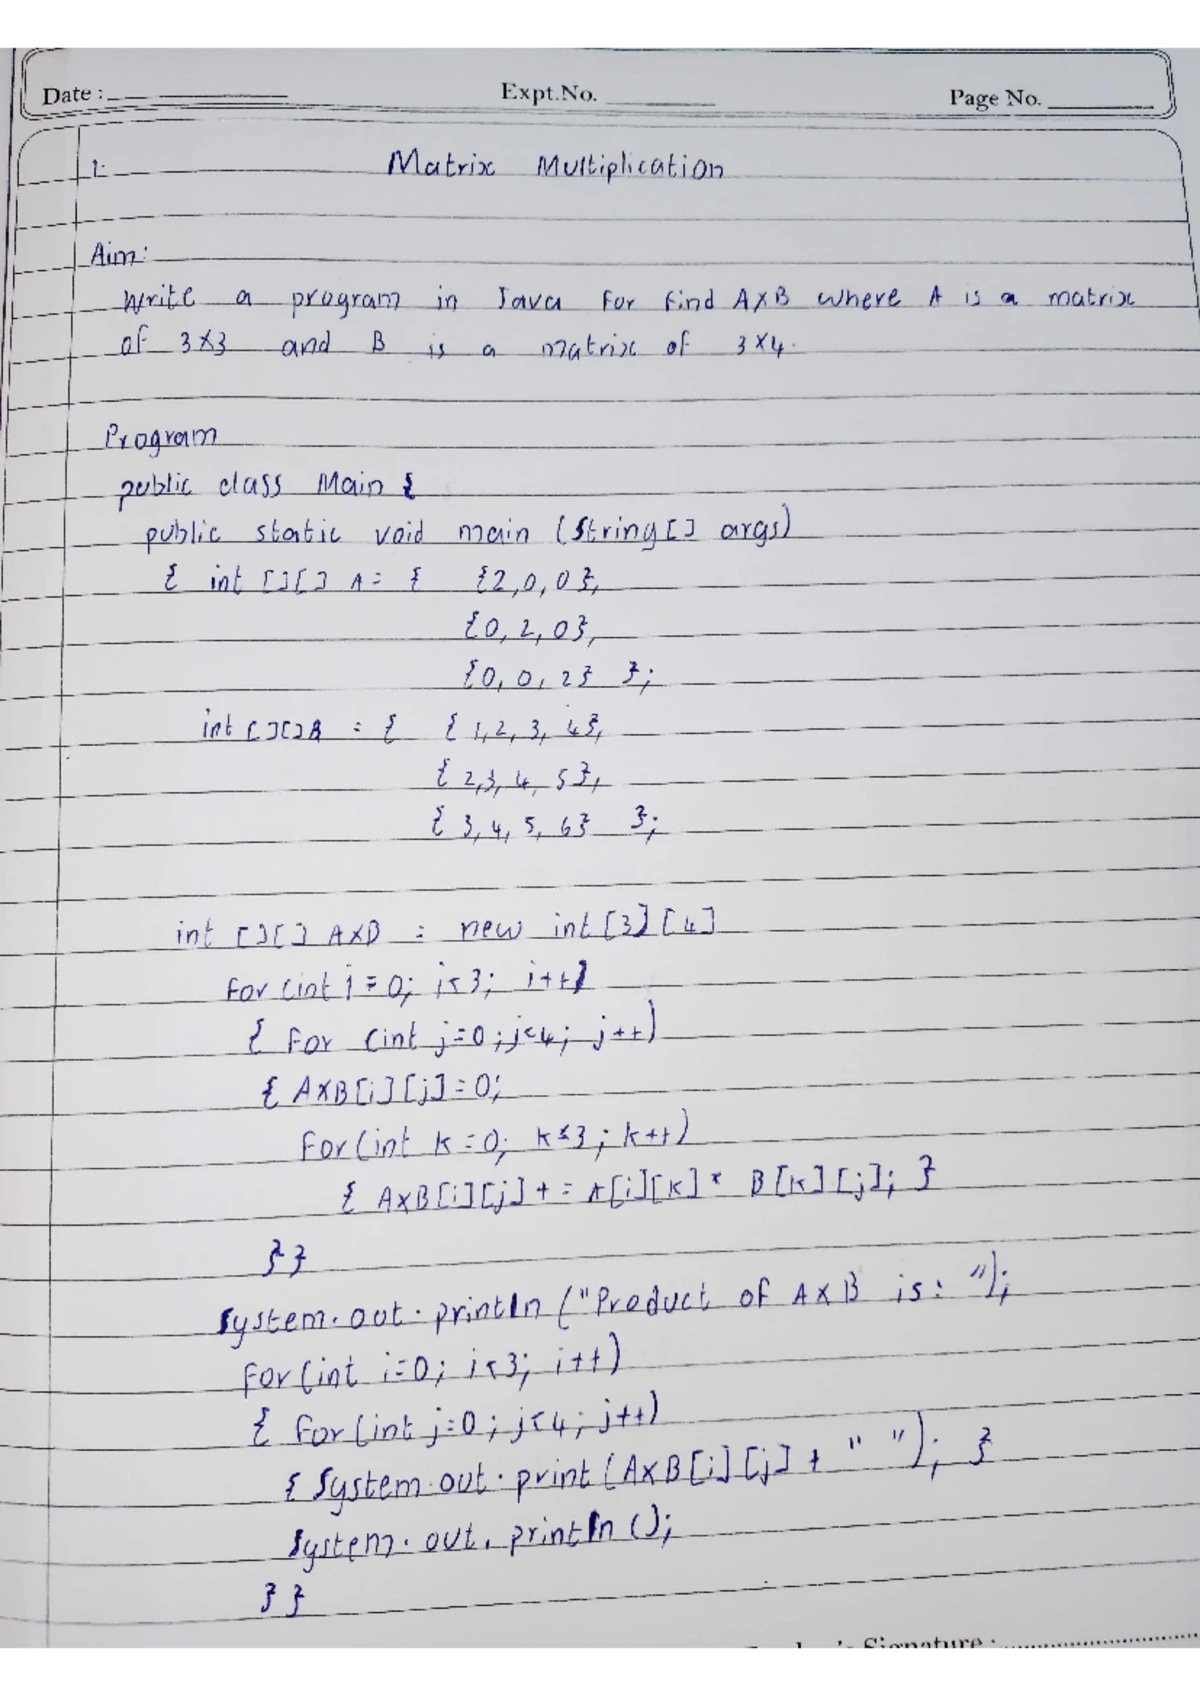 Date :
Expt.No.
Page No.
1. Matrix Multiplication
Aim:
Write a program in Java For Find AXB where A is a matrix
of 3X3 and B is a matrix of 3X4.
Program
public class Main {
public static void main (String[] args)
{ int [][] A = { {2,0,0},
{0, 2, 0},
{0, 0, 2} };
int [][] B = { { 1,2, 3, 4},
{ 2,3, 4, 5},
{ 3, 4, 5, 6} };
int [][] AXB = new int [3] [4]
For (int i = 0; i<3; i++)
{ For (int j=0; j<4; j++)
{ AXB[i][j] = 0;
For (int k = 0; k<3; k++)
{ AXB[i][j] += A[i][k] * B[k][j]; }
} }
System.out.println ("Product of AXB is: ");
For (int i=0; i<3; i++)
{ For (int j=0; j<4; j++)
{ System.out.print (AXB[i][j] + " "); }
System.out.println ();
} }
Signature :